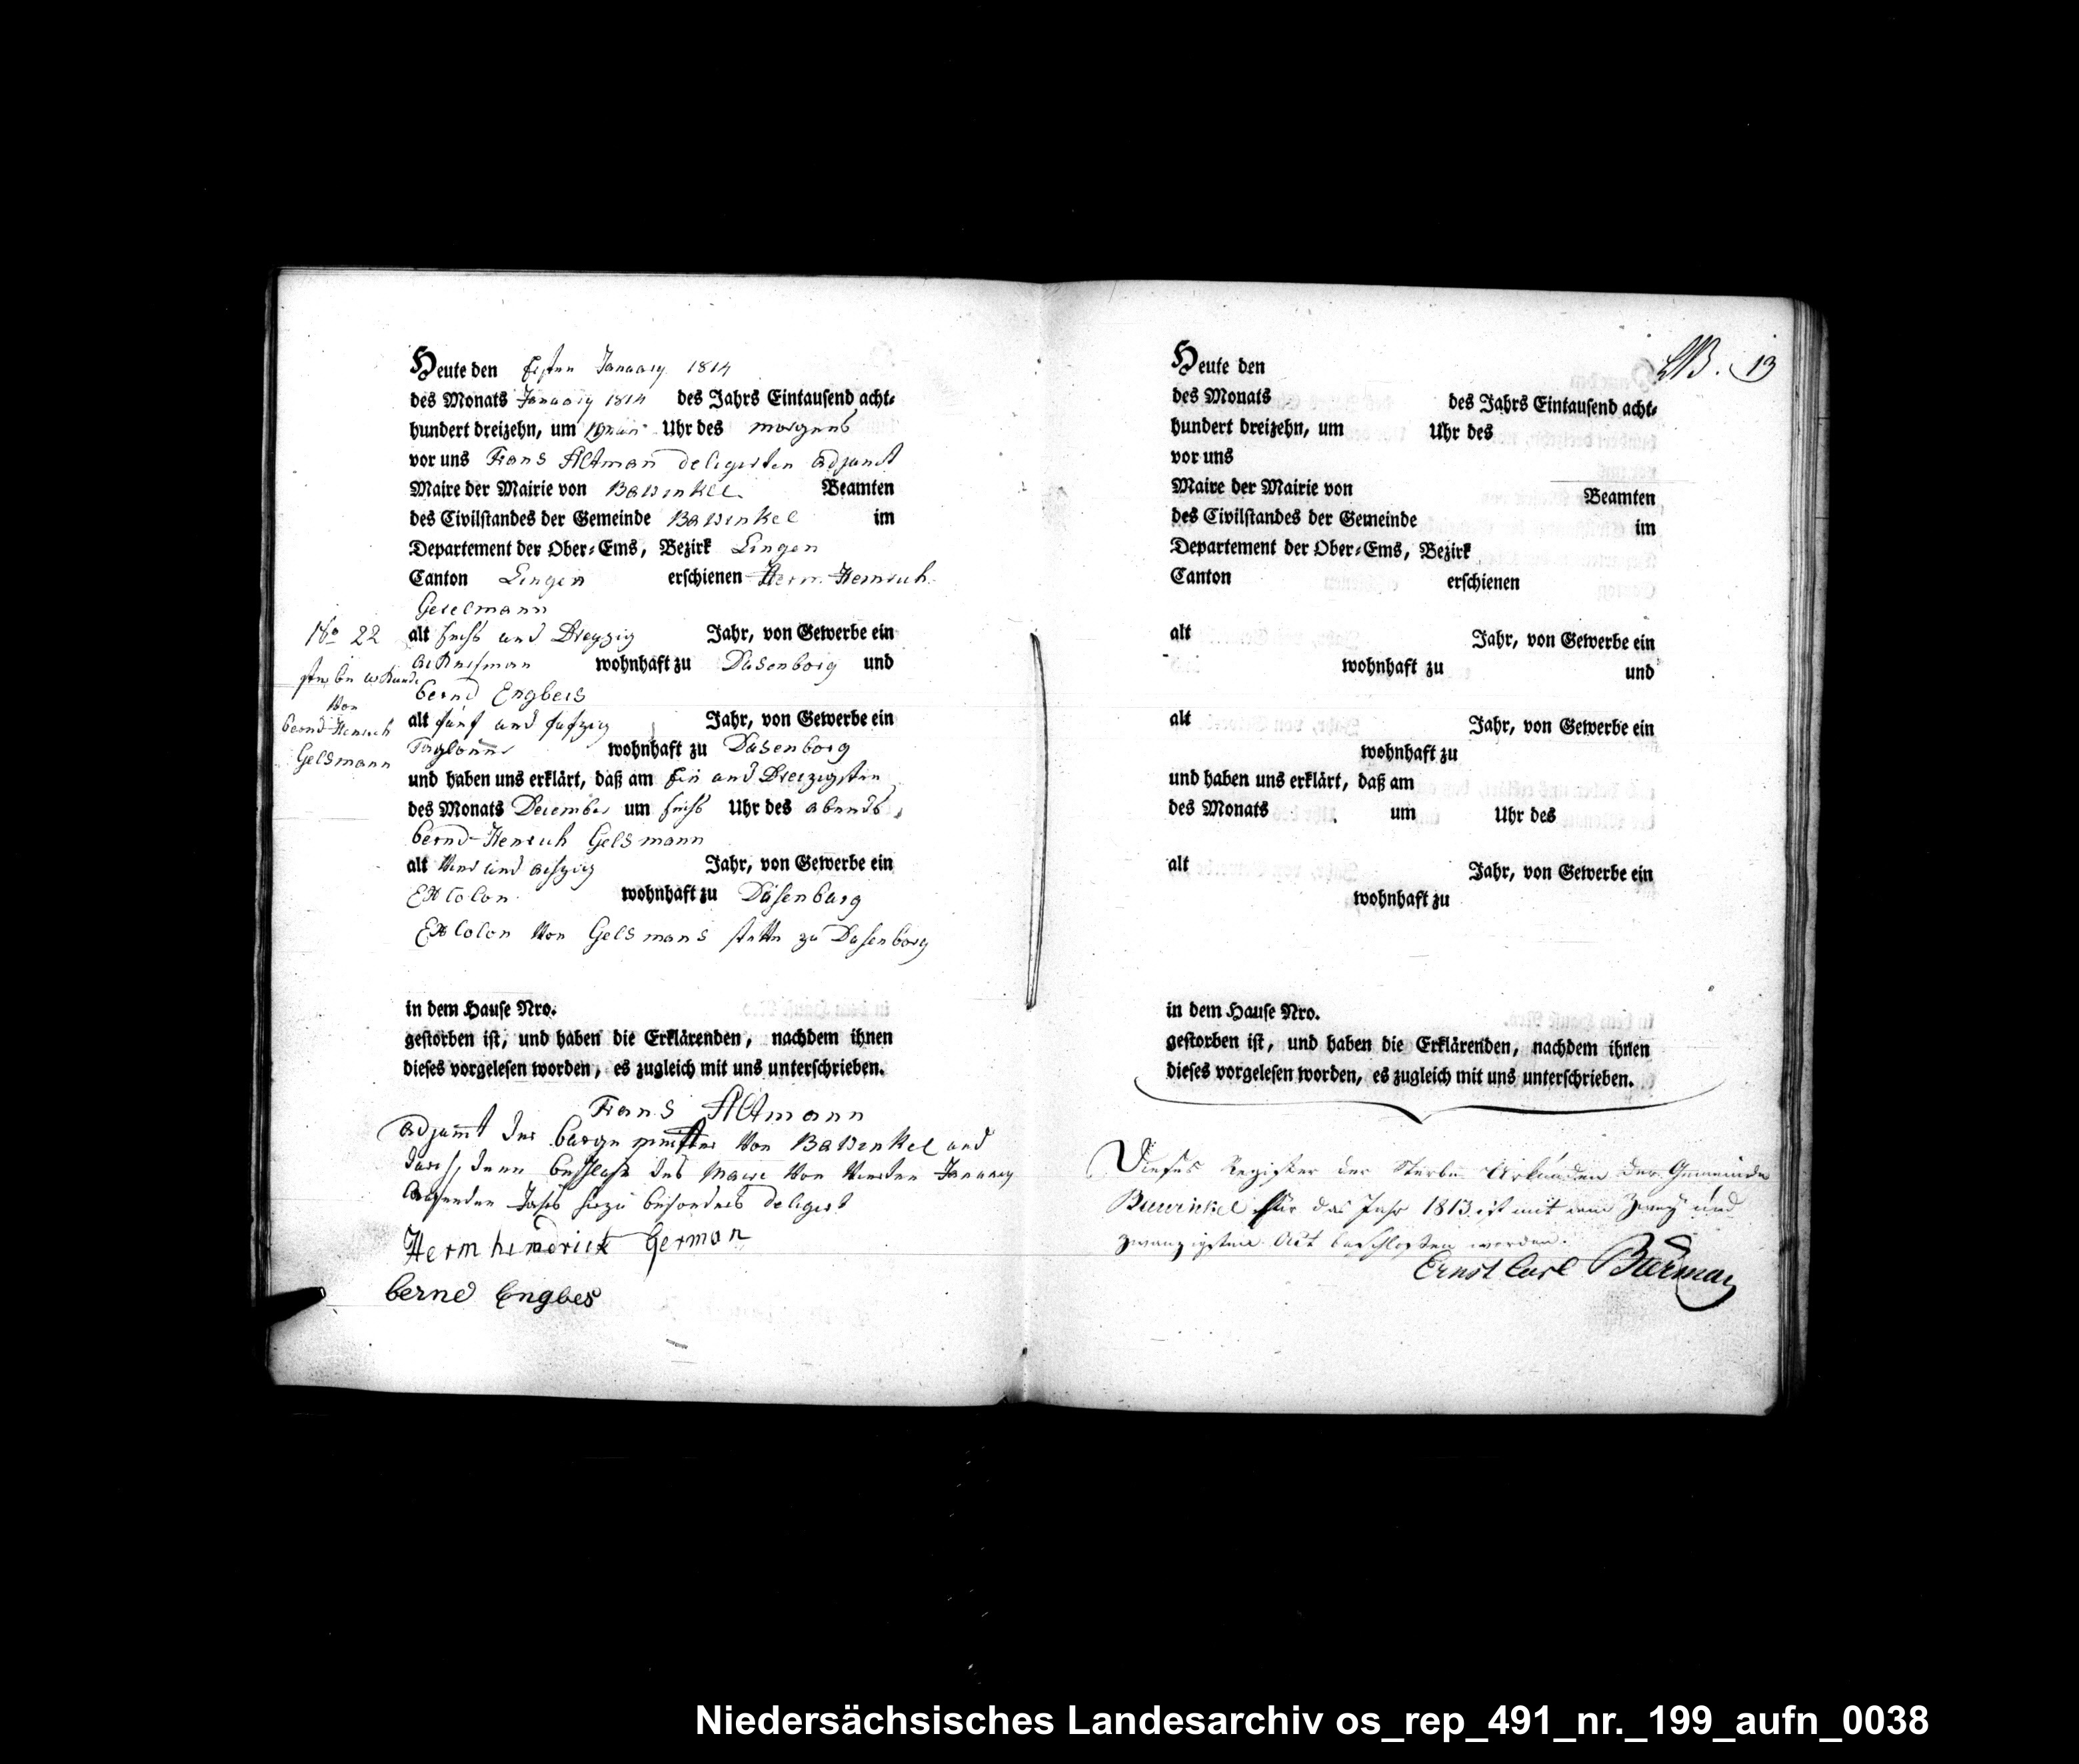 Heute den Ersten January 1814
des Monats January 1814 des Jahrs Eintausend acht-
hundert dreizehn, um Uhr des morgens
vor uns Frans Altman deligirten adjunct
Maire der Mairie von Bawinkel Beamten
des Civilstandes der Gemeinde Bawinkel im
Departement der Ober-Ems, Bezirk Lingen
Canton Lingen erschienen Herm Henrich
Geselmann
No 22
alt sechs und Dreyzig Jahr, von Gewerbe ein
ackersman wohnhaft zu Dusenborg und
sterbe urkunde
von
Bernd Henrich
Gelsmann
bernd Engbers
alt fünf und fufzig Jahr, von Gewerbe ein
wohnhaft zu Dusenborg
und haben uns erklärt, daß am Ein und Dreizigsten
des Monats December um sechs Uhr des abends,
bernd Henrich Gelsmann
alt und achzig Jahr, von Gewerbe ein
Ex Colon wohnhaft zu Düsenburg
Ex Colon von Gelsmans stette zu Dusenborg
in dem Hause Nro.
gestorben ist, und haben die Erklärenden, nachdem ihnen
dieses vorgelesen worden, es zugleich mit uns unterschrieben.
Frans Altmann
adjunct des burge meister von Bawinkel und
durch denn beschluss des Maire von vierten January
laufenden Jahrs hiezu besonders deligirt
Herm hinderick German
bernd Engbes
13
Heute den
des Monats des Jahrs Eintausend acht-
hundert dreizehn, um Uhr des
vor uns
Maire der Mairie von Beamten
des Civilstandes der Gemeinde im
Departement der Ober-Ems, Bezirk
Canton erschienen
alt Jahr, von Gewerbe ein
wohnhaft zu und
alt Jahr, von Gewerbe ein
wohnhaft zu
und haben uns erklärt, daß am
des Monats um Uhr des
alt Jahr, von Gewerbe ein
wohnhaft zu
in dem Hause Nro.
gestorben ist, und haben die Erklärenden, nachdem ihnen
dieses vorgelesen worden, es zugleich mit uns unterschrieben.
Dieses Register der Sterbe Urkunden der Gemeinde
Bawinkel für das Jahr 1813 ist mit dem zwey und
zwanzigsten Act beschlossen worden.
Ernst Carl
Niedersächsisches Landesarchiv os_rep_491_nr._199_aufn_0038